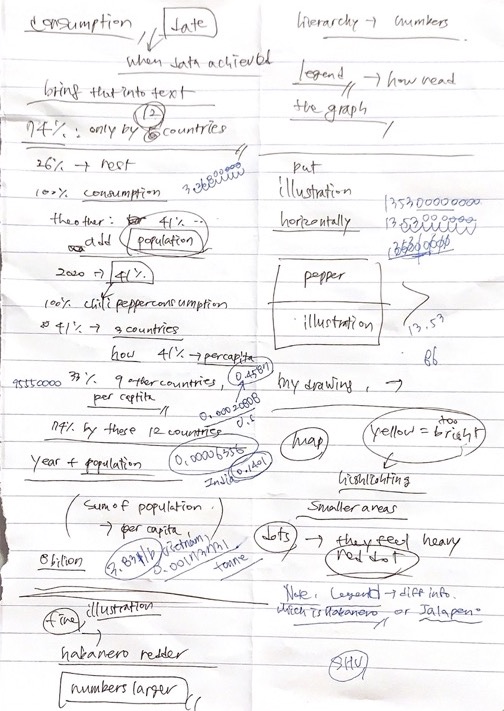 consumption, date
when data achieved
bring that into text
12
74% : only by countries
26% → rest
100% consumption
the other: 41%
add population
2020 → 41%
100% chili pepper consumption
41% → 3 countries
how 41% → per capita
33% 9 other countries, 0.4587
per captita
95550000
0.00020808
0.5
74% by these 12 countries
0,00006356
year + population
India 0.1401
(sum of population
→ per capita)
8 bilion
Vietnam,
tonne
fine, illustration
→
habanero redder
numbers larger
hierarchy → numbers
legend → how read
the graph
put
illustration
horizontally
13530000000
pepper
illustration
13.53
86
my drawing, →
map
yellow = too bright
highlighting
smaller areas
dots → they feel heavy
red dot
Note, Legend → diff info.
which is Habanero or Jalapeno
SHU